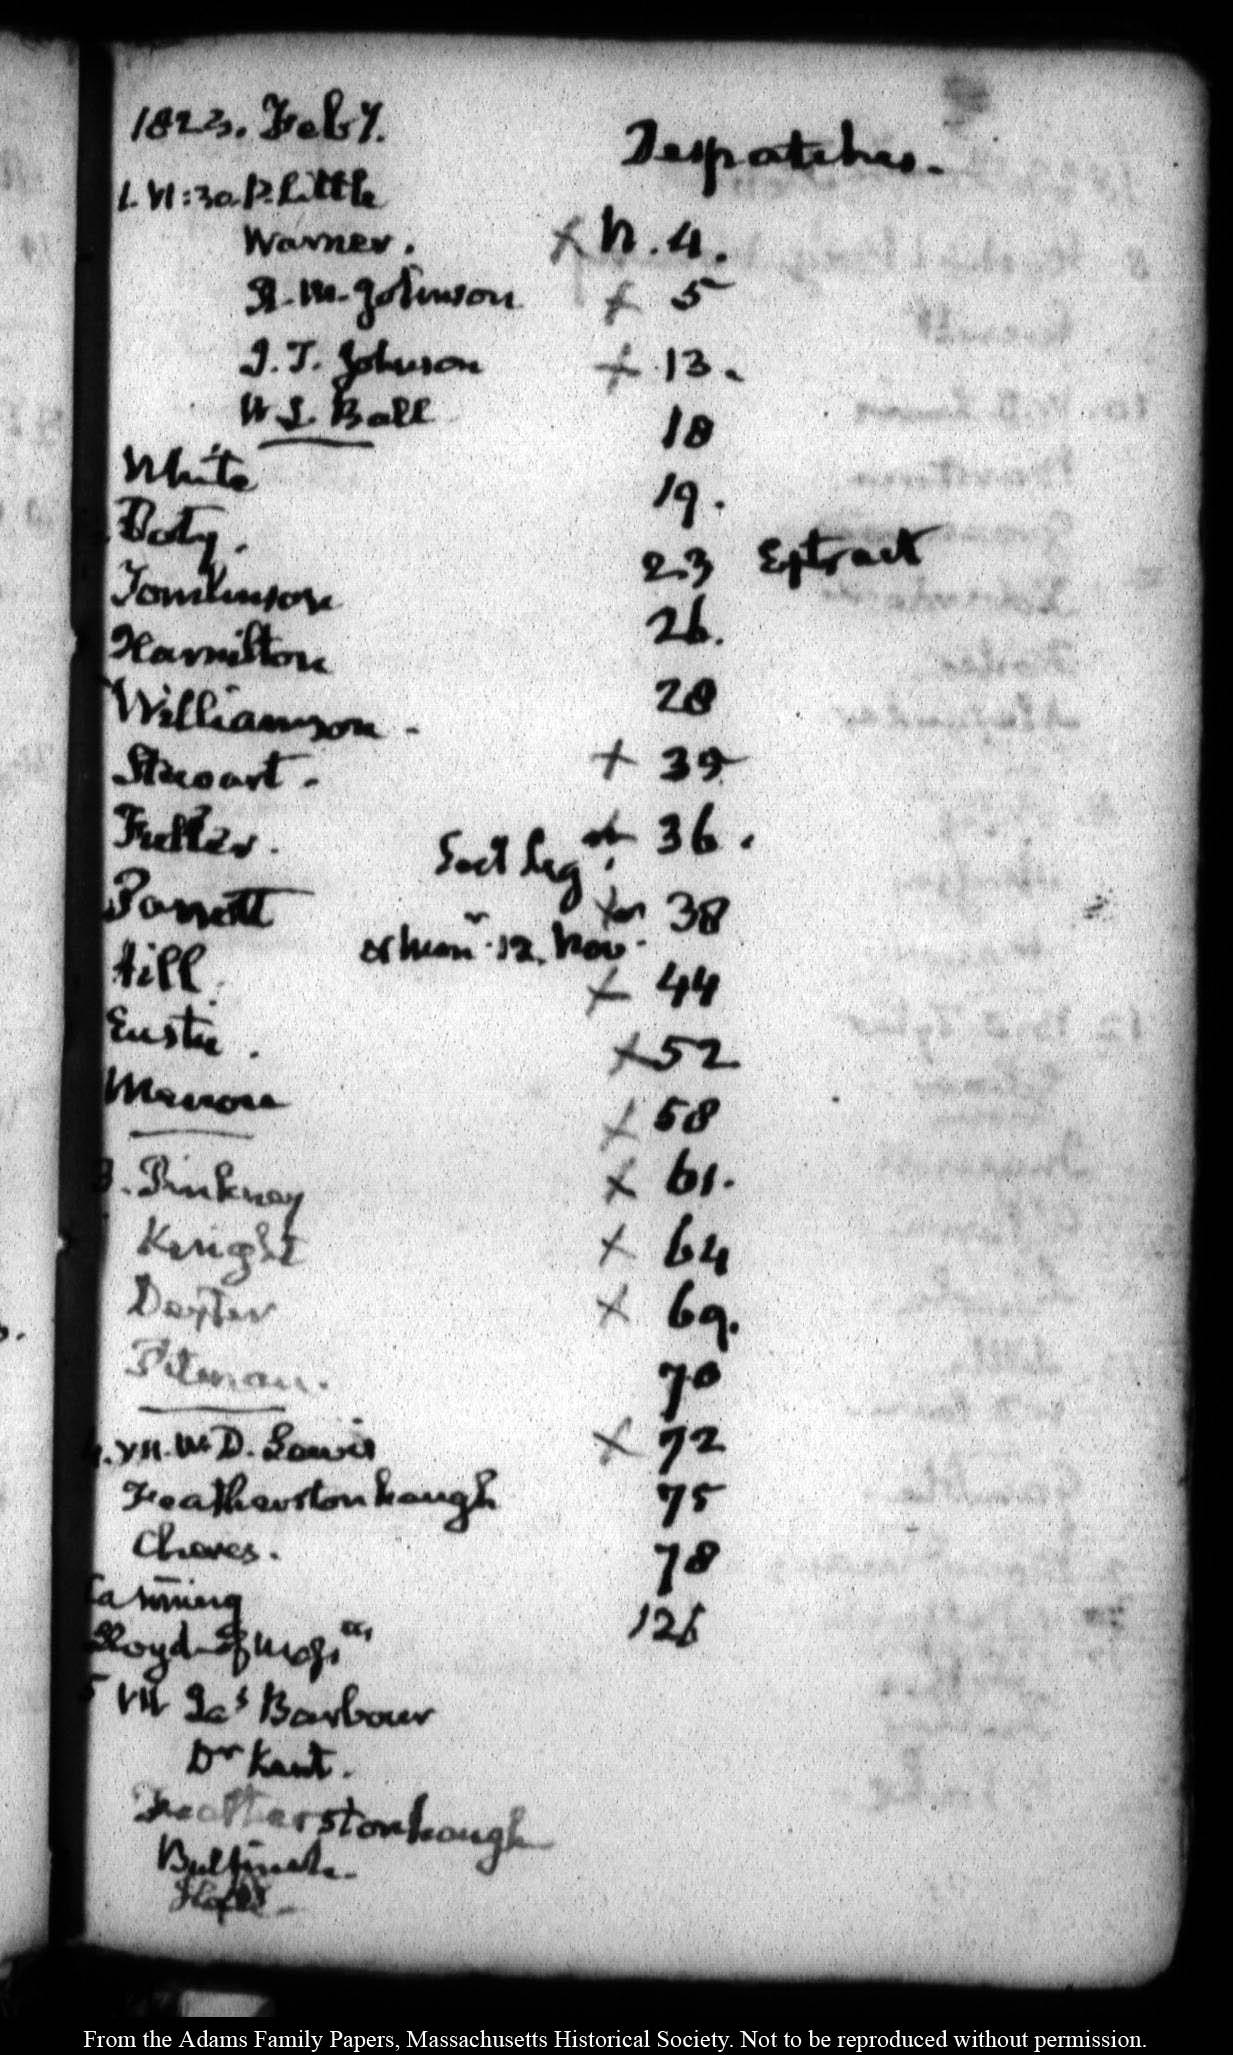 1823. Feby.
Despatches.
1. VI: 30. P. Little
Warner.
R. M. Johnson
J. T. Johnson
W L Ball
White
Doty.
Tomlinson
Hamilton
Williamson.
Stewart.
Fuller.
Parrott
Hill.
Eustis.
Monroe
3. Pinkney
Knight
Dexter
Pitman.
4. VII. Wm D. Lewis
Featherstonhaugh
Chaves.
Canning
Lloyd of Mass
5 VII Jas Barbour
Dr Kent.
Featherstonhaugh
Bulfinch.
X N. 4.
X 5
X 13.
18
19.
23 Extract
26.
28
X 35
X 36.
Sect Leg
X 38
12. Nov.
X 44
X 52
X 58
X 61.
X 64
X 69.
70
X 72
75
78
126
From the Adams Family Papers, Massachusetts Historical Society. Not to be reproduced without permission.